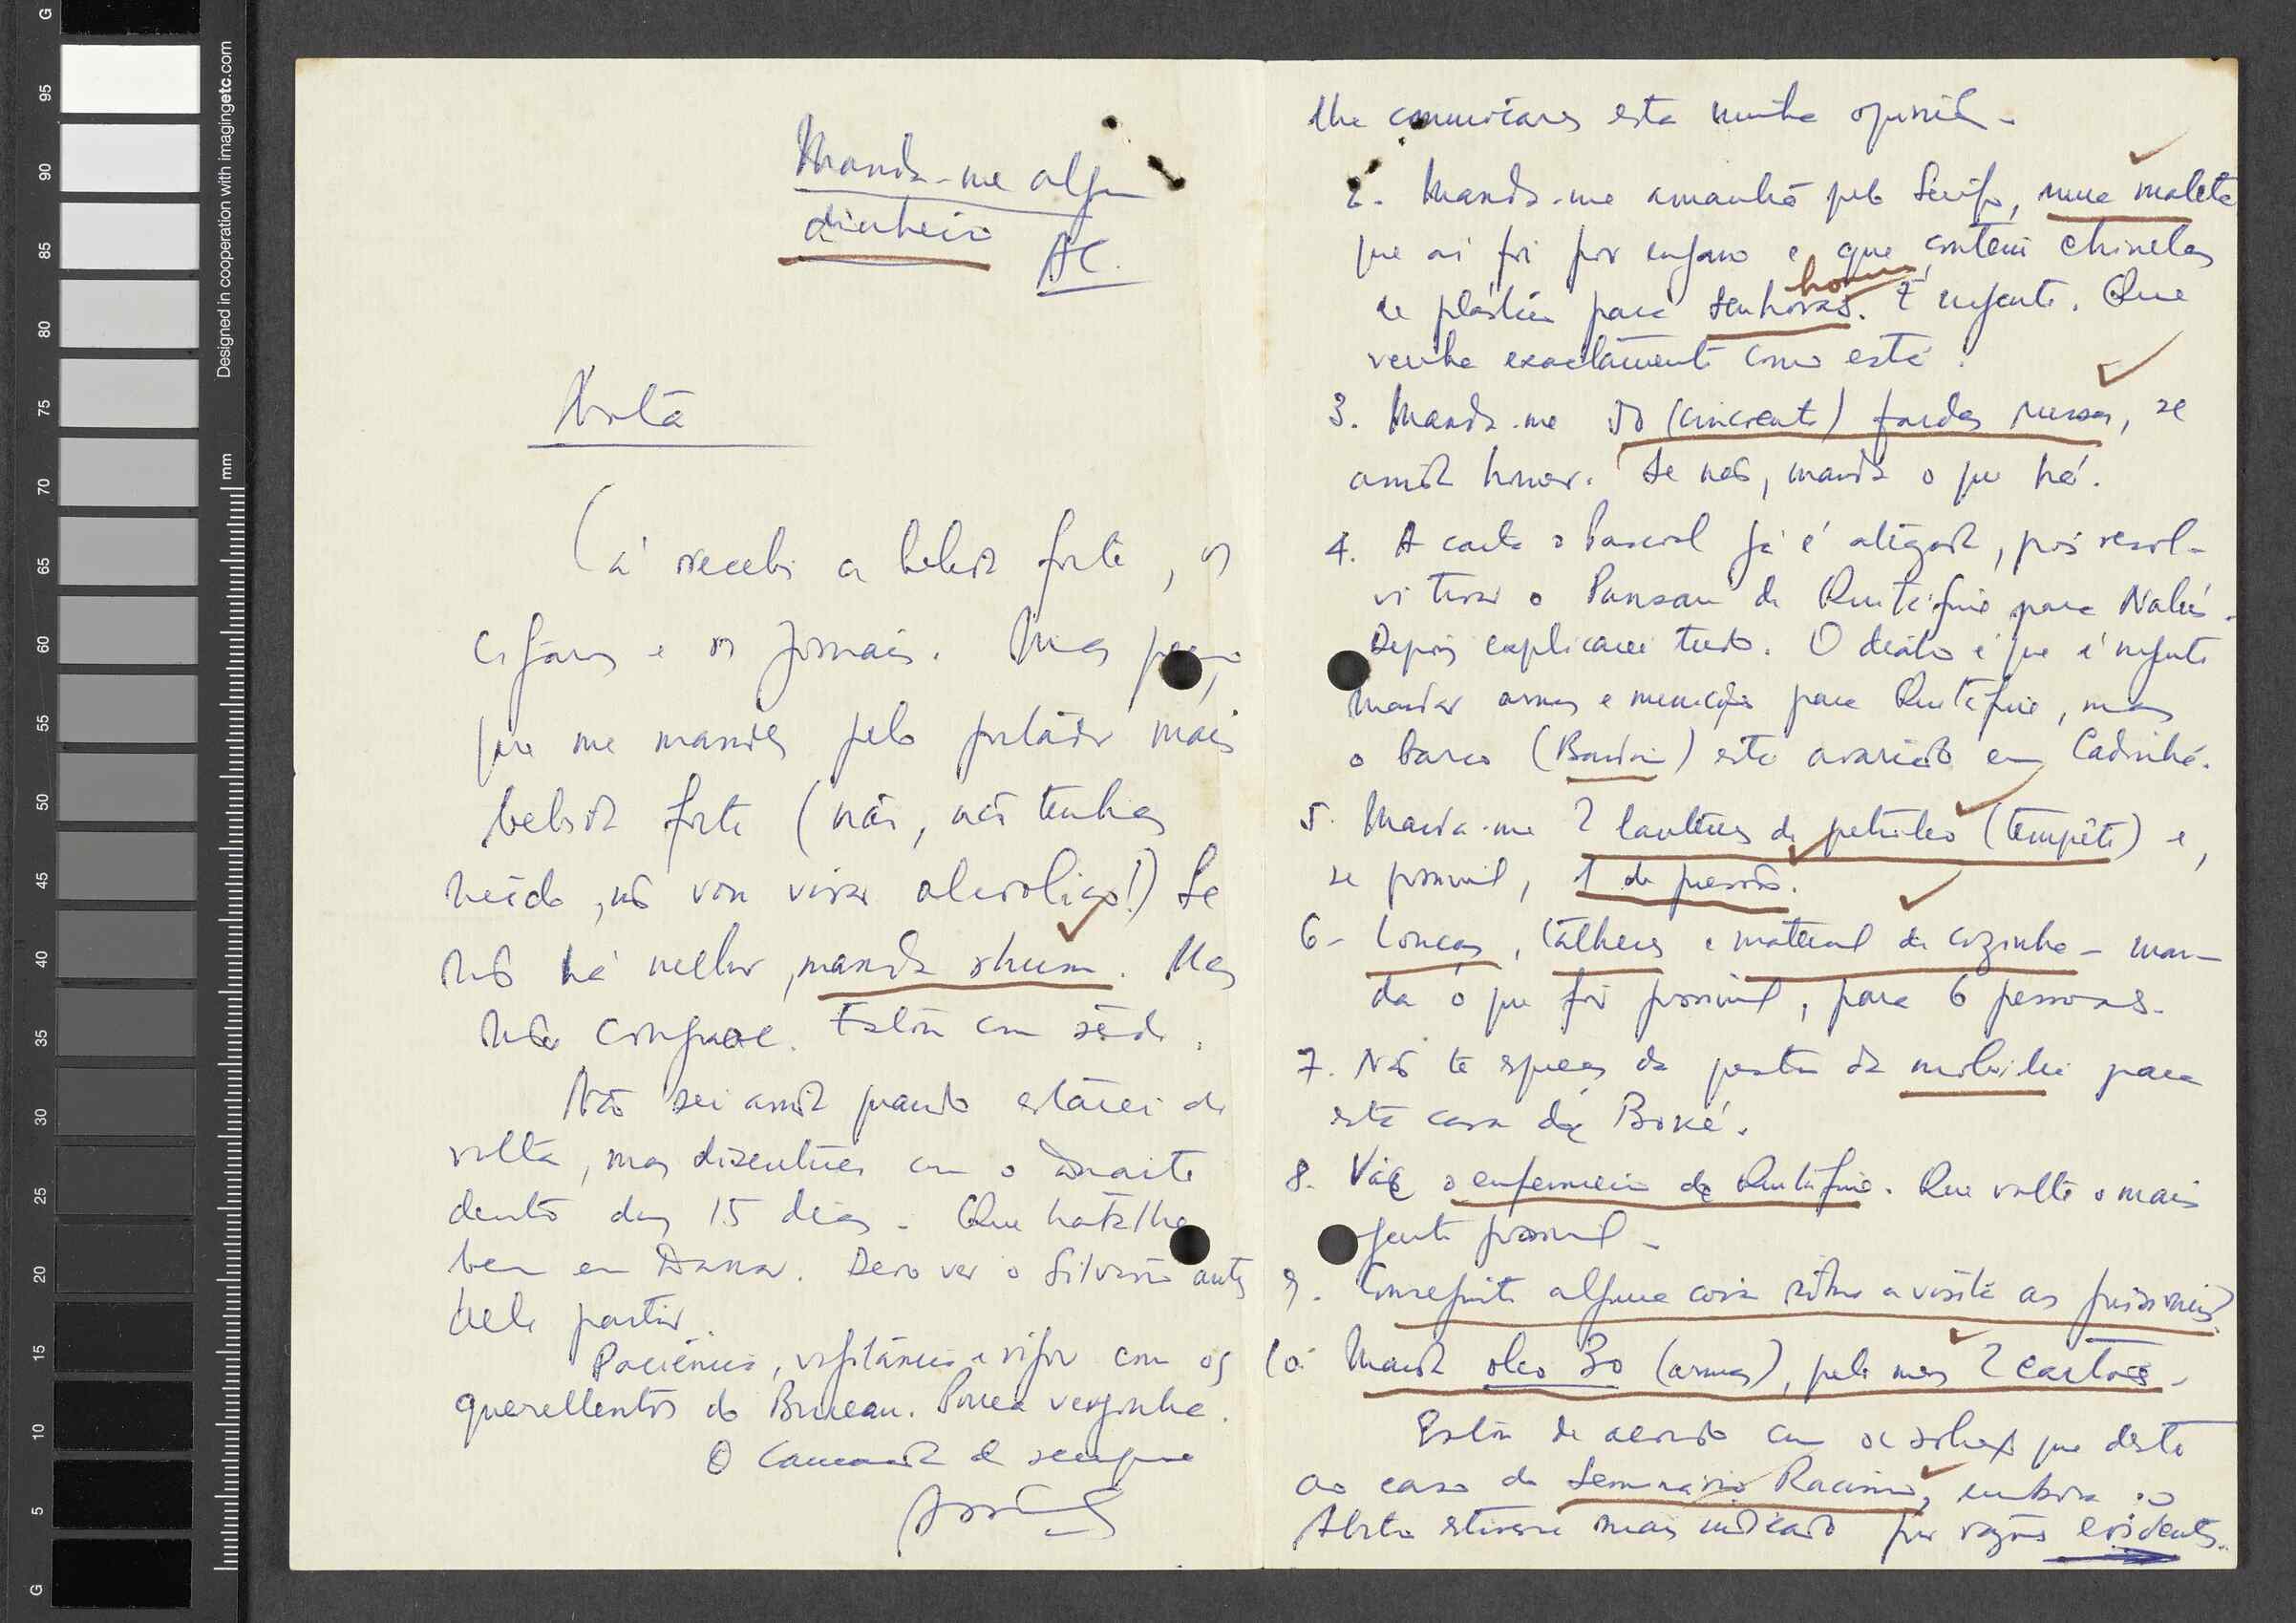 G
95
90
85
80
75
70
65
60
55
50
45
40
35
30
25
20
15
10
5
G
Designed in cooperation with imagingetc.com
mm
Manda-me algum
dinheiro
AC.
Nota
Cá recebi a bebida forte, os
cigarros e os jornais. Mas peço
que me mandes pelo portador mais
bebida forte (não, não tenhas
medo, não vou virar alcoólico!) Se
não há melhor, manda rhum. Mas
não cognac. Estou com sede.
Não sei ainda quando estarei de
volta, mas discutirei com o Duarte
dentro dos 15 dias. Que trabalhe
bem em Dakar. Devo ver o Silvino antes
dele partir.
Paciência, vigilância e vigor com os
querellentos do Bureau. Pouca vergonha.
O camarada de sempre
lhe comunicares esta minha opinião.
2. Manda-me amanhã pelo Serifo, uma maleta
que aí foi por engano e que contém chinelas
de plástico para senhoras. É urgente. Que
homem
venha exactamente como está.
3. Manda-me 50 (cincoenta) fardas russas, se
ainda houver. Se não, manda o que há.
4. A carta o Pascoal já é atigada, pois resol-
vi tirar o Pansau de Quitafine para Nalús.
Depois explicarei tudo. O diabo é que é urgente
mandar armas e munições para Quitafine, mas
o barco (Bandim) está avariado em Cadinhé.
5. Manda-me 2 lanternas de petróleo (tempête) e,
se possível, 1 de pressão.
6- Louças, talheres e material de cozinha - man-
da o que for possível, para 6 pessoas.
7. Não te esqueças da questão da mobília para
esta casa de Boké.
8. Vai o enfermeiro de Quitafine. Que volte o mais
urgente possível.
9. Conseguiste alguma coisa sobre a visita aos prisioneiros?
10. Manda oleo 30 (armas), pelo menos 2 cartões.
Estou de acordo com a solução que deste
ao caso do Seminário Racismo, embora o
estivesse mais indicado por razões evidentes.